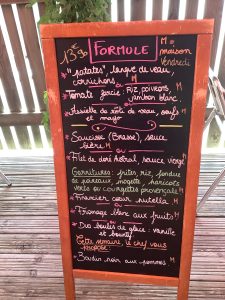 13€90
FORMULE
M = maison
Vendredi
"8 patates", langue de veau,
cornichons M
ou
Tomate farcie : riz, poivrons,
jambon blanc
ou
Assiette de rôti de veau, oeufs
et mayo
Saucisse (Brasse), sauce
bière M
ou
Filet de dinde, sauce vierge
Garnitures : frites, riz, fondue
de poireaux, mogette, haricots
verts ou courgettes provençale M
Financier coeur nutella M
ou
Fromage blanc aux fruits M
ou
Deux boules de glace : vanille
et bounty
Cette semaine, le chef vous
propose :
Boudin noir aux pommes M